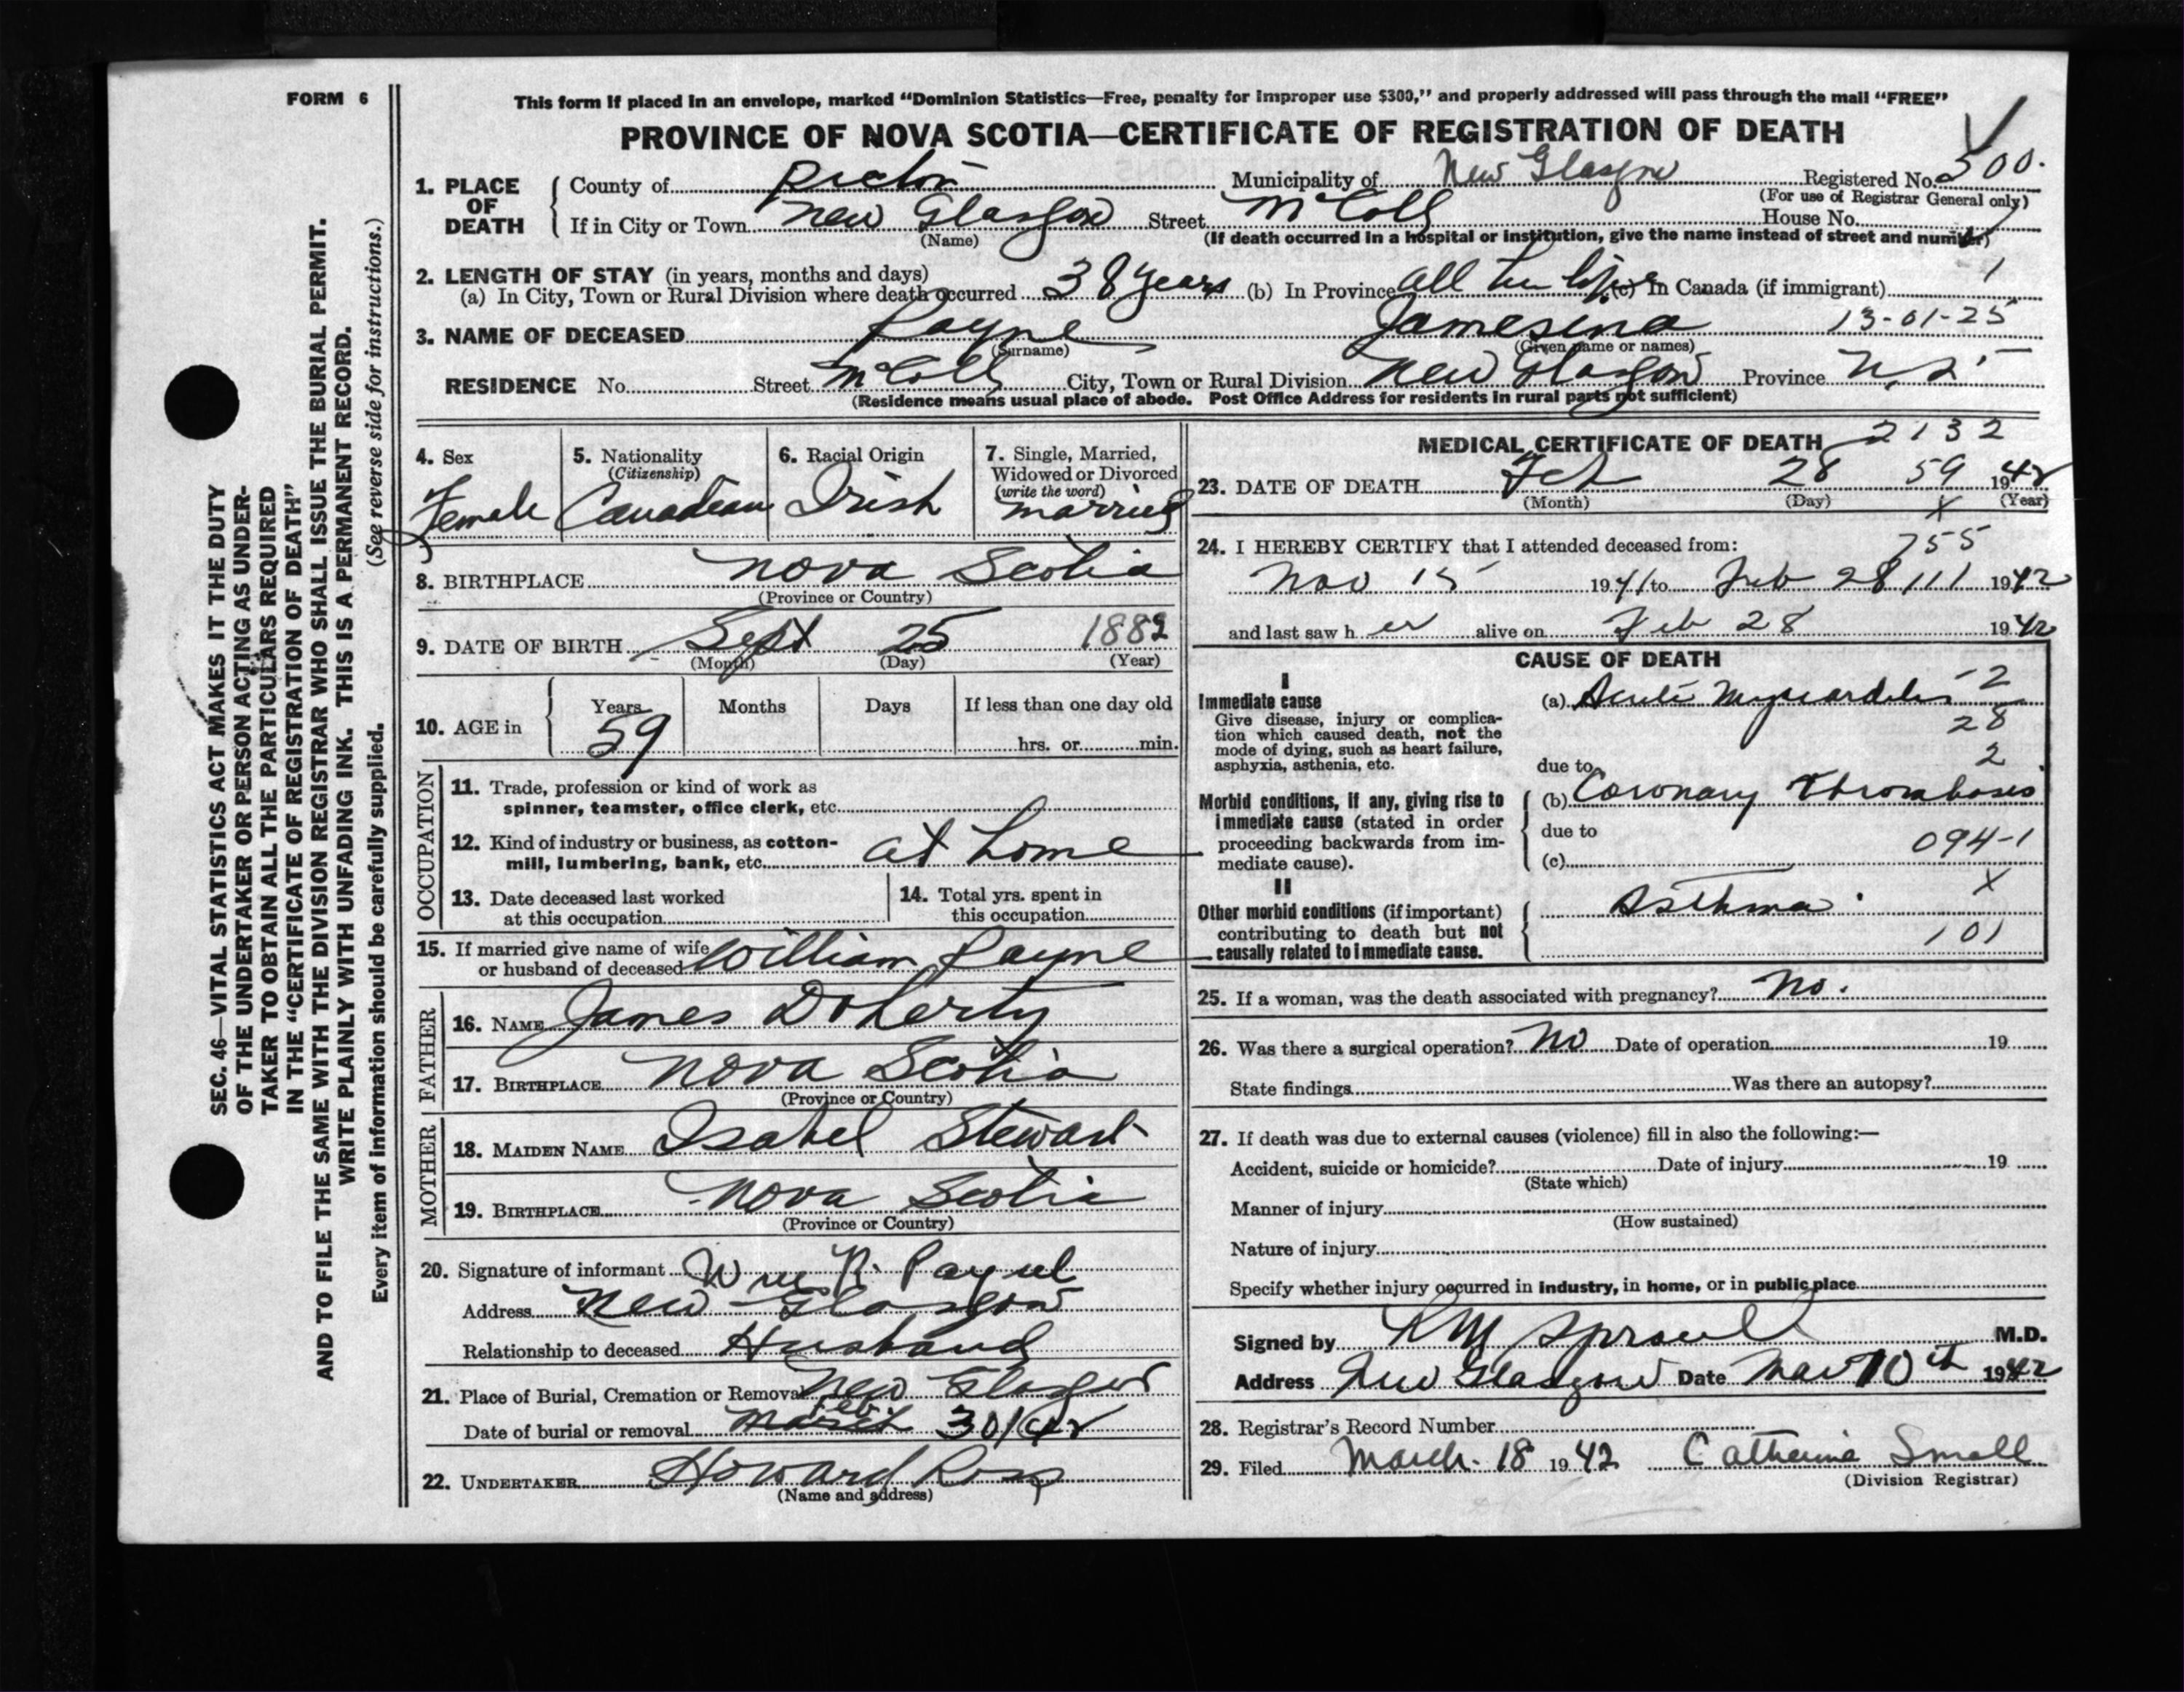 FORM 6
This form if placed in an envelope, marked “Dominion Statistics—Free, penalty for improper use $300,” and properly addressed will pass through the mail “FREE”
PROVINCE OF NOVA SCOTIA—CERTIFICATE OF REGISTRATION OF DEATH
1. PLACE OF DEATH County of Pictou Municipality of New Glasgow Registered No. 500.
(For use of Registrar General only)
If in City or Town New Glasgow Street McColl House No.
(Name) (If death occurred in a hospital or institution, give the name instead of street and number)
2. LENGTH OF STAY (in years, months and days)
(a) In City, Town or Rural Division where death occurred 38 years (b) In Province all her life (c) In Canada (if immigrant) 1
3. NAME OF DECEASED Payne Jamesena 13-01-25
(Surname) (Given name or names)
RESIDENCE No. Street McColl City, Town or Rural Division New Glasgow Province N.S.
(Residence means usual place of abode. Post Office Address for residents in rural parts not sufficient)
4. Sex Female
5. Nationality (Citizenship) Canadian
6. Racial Origin Irish
7. Single, Married, Widowed or Divorced (write the word) married
8. BIRTHPLACE Nova Scotia
(Province or Country)
9. DATE OF BIRTH Sept 25 1882
(Month) (Day) (Year)
10. AGE in Years 59 Months Days If less than one day old
hrs. or min.
OCCUPATION
11. Trade, profession or kind of work as
spinner, teamster, office clerk, etc.
12. Kind of industry or business, as cotton-
mill, lumbering, bank, etc. at home
13. Date deceased last worked
at this occupation
14. Total yrs. spent in
this occupation
15. If married give name of wife
or husband of deceased William Payne
FATHER
16. NAME James Doherty
17. BIRTHPLACE Nova Scotia
(Province or Country)
MOTHER
18. MAIDEN NAME Isabel Stewart
19. BIRTHPLACE Nova Scotia
(Province or Country)
20. Signature of informant Wm R. Payne
Address New Glasgow
Relationship to deceased Husband
21. Place of Burial, Cremation or Removal New Glasgow
Date of burial or removal March Feb. 30/42
22. UNDERTAKER Howard Ross
(Name and address)
MEDICAL CERTIFICATE OF DEATH 2132
23. DATE OF DEATH Feb 28 59 1942
(Month) (Day) X (Year)
24. I HEREBY CERTIFY that I attended deceased from: 755
Nov 15 1941 to Feb 28 111 1942
and last saw h er alive on Feb 28 1942
CAUSE OF DEATH
I
Immediate cause
Give disease, injury or complica-
tion which caused death, not the
mode of dying, such as heart failure,
asphyxia, asthenia, etc.
(a) Acute Myocarditis -2
28
2
due to
Morbid conditions, if any, giving rise to
immediate cause (stated in order
proceeding backwards from im-
mediate cause).
(b) Coronary Thrombosis
due to
094-1
(c)
II
Other morbid conditions (if important)
contributing to death but not
causally related to immediate cause.
Asthma X
101
25. If a woman, was the death associated with pregnancy? No.
26. Was there a surgical operation? No Date of operation 19
State findings Was there an autopsy?
27. If death was due to external causes (violence) fill in also the following:—
Accident, suicide or homicide? Date of injury 19
(State which)
Manner of injury
(How sustained)
Nature of injury
Specify whether injury occurred in industry, in home, or in public place
Signed by Sproull M.D.
Address New Glasgow Date Mar 10th 1942
28. Registrar's Record Number
29. Filed March 18 1942 Catherine Small
(Division Registrar)
SEC. 46—VITAL STATISTICS ACT MAKES IT THE DUTY
OF THE UNDERTAKER OR PERSON ACTING AS UNDER-
TAKER TO OBTAIN ALL THE PARTICULARS REQUIRED
IN THE “CERTIFICATE OF REGISTRATION OF DEATH”
AND TO FILE THE SAME WITH THE DIVISION REGISTRAR WHO SHALL ISSUE THE BURIAL PERMIT.
WRITE PLAINLY WITH UNFADING INK. THIS IS A PERMANENT RECORD.
Every item of information should be carefully supplied. (See reverse side for instructions.)